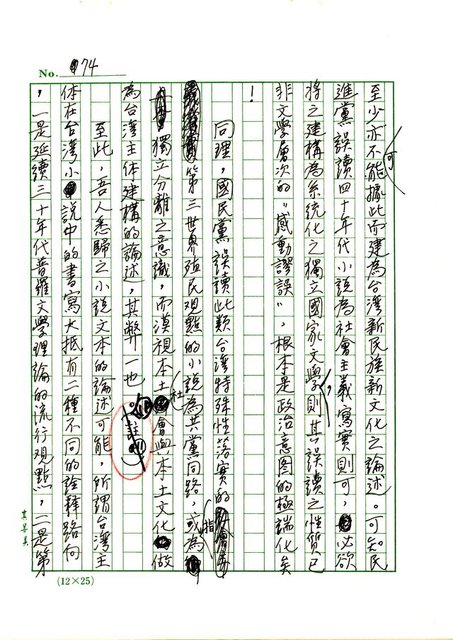 No. 74
至少亦不能據此而建為台灣新民族新文化之論述。可知民
可
進黨誤讀四十年代小說為社會主義寫實則可，必欲
將之建構為系統化之獨立國家文學，則其誤讀之性質已
非文學層次的“感動謬誤”，根本是政治意圖的極端化矣
！
同理，國民黨誤讀此類台灣特殊性落實的
第三世界殖民觀點的小說為共黨同路，或為
指
獨立分離之意識，而漠視本土社會與本土文化做
為台灣主体建構的論述，其弊一也。註
至此，吾人悉歸之小說文本的論述可能，所謂台灣主
体在台灣小說中的書寫大抵有二種不同的詮釋路向
，一是延續三十年代普羅文學理論的流行觀點，二是第
(12×25)